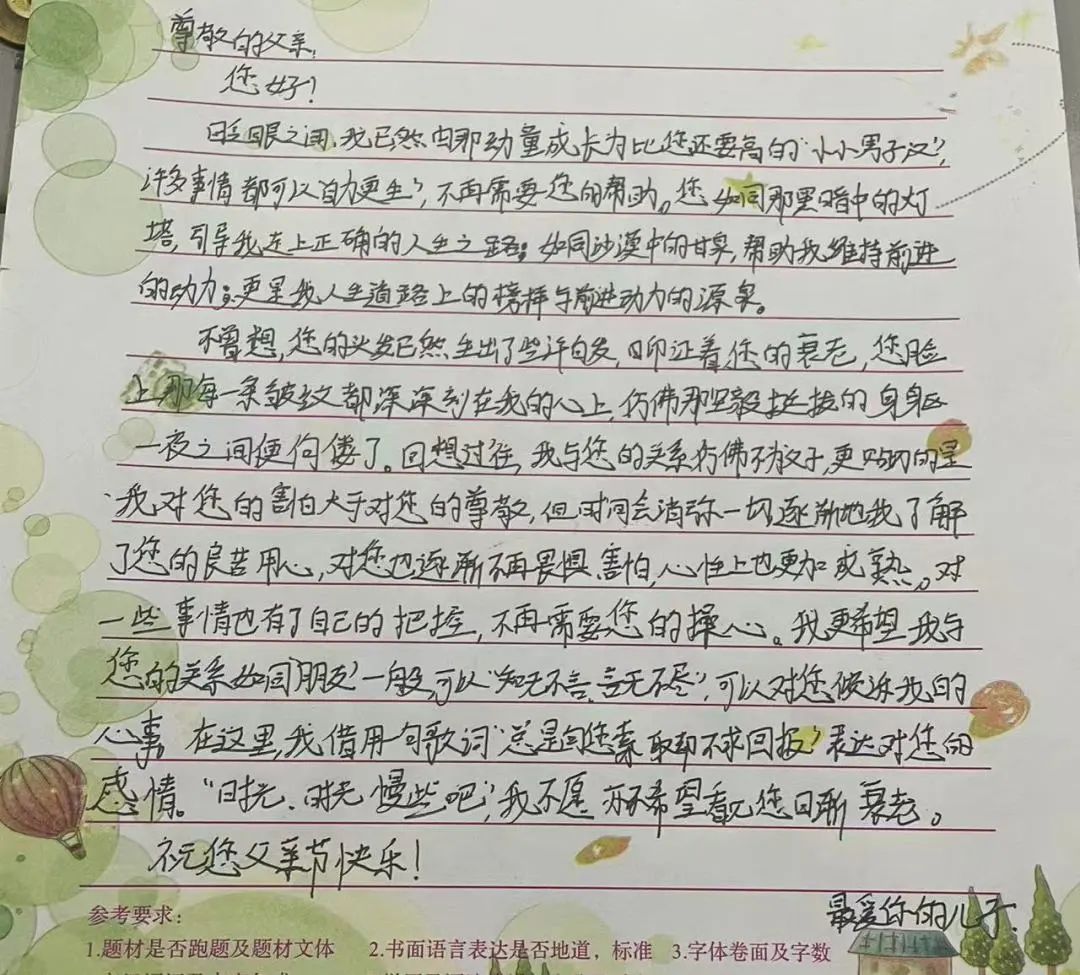 尊敬的父亲:
您好!
眨眼之间,我已然由那幼童成长为比您还要高的“小小男子汉”,
许多事情都可以“自力更生”,不再需要您的帮助。您如同那黑暗中的灯
塔,引导我走上正确的人生之路;如同沙漠中的甘泉,帮助我维持前进
的动力;更是我人生道路上的榜样与前进动力的源泉。
不曾想,您的头发已然生出了些许白发,印证着您的衰老,您脸
上那每一条皱纹都深深刻在我的心上,仿佛那坚毅挺拔的身躯
一夜之间便佝偻了。回想过往,我与您的关系仿佛不为父子,更贴切的是
我对您的害怕大于对您的尊敬,但时间会消弥一切,逐渐地我了解
了您的良苦用心,对您也逐渐不再畏惧、害怕,心性上也更加成熟。对
一些事情也有了自己的把控,不再需要您的操心。我更希望我与
您的关系如同“朋友”一般,可以“知无不言,言无不尽”,可以对您倾诉我的
心事,在这里,我借用一句歌词“总是向您索取却不求回报”表达对您的
感情。“时光,时光慢些吧”,我不愿,亦不希望看见您日渐衰老。
祝您父亲节快乐!
最爱你的儿子
参考要求:
1.题材是否跑题及题材文体 2.书面语言表达是否地道,标准 3.字体卷面及字数